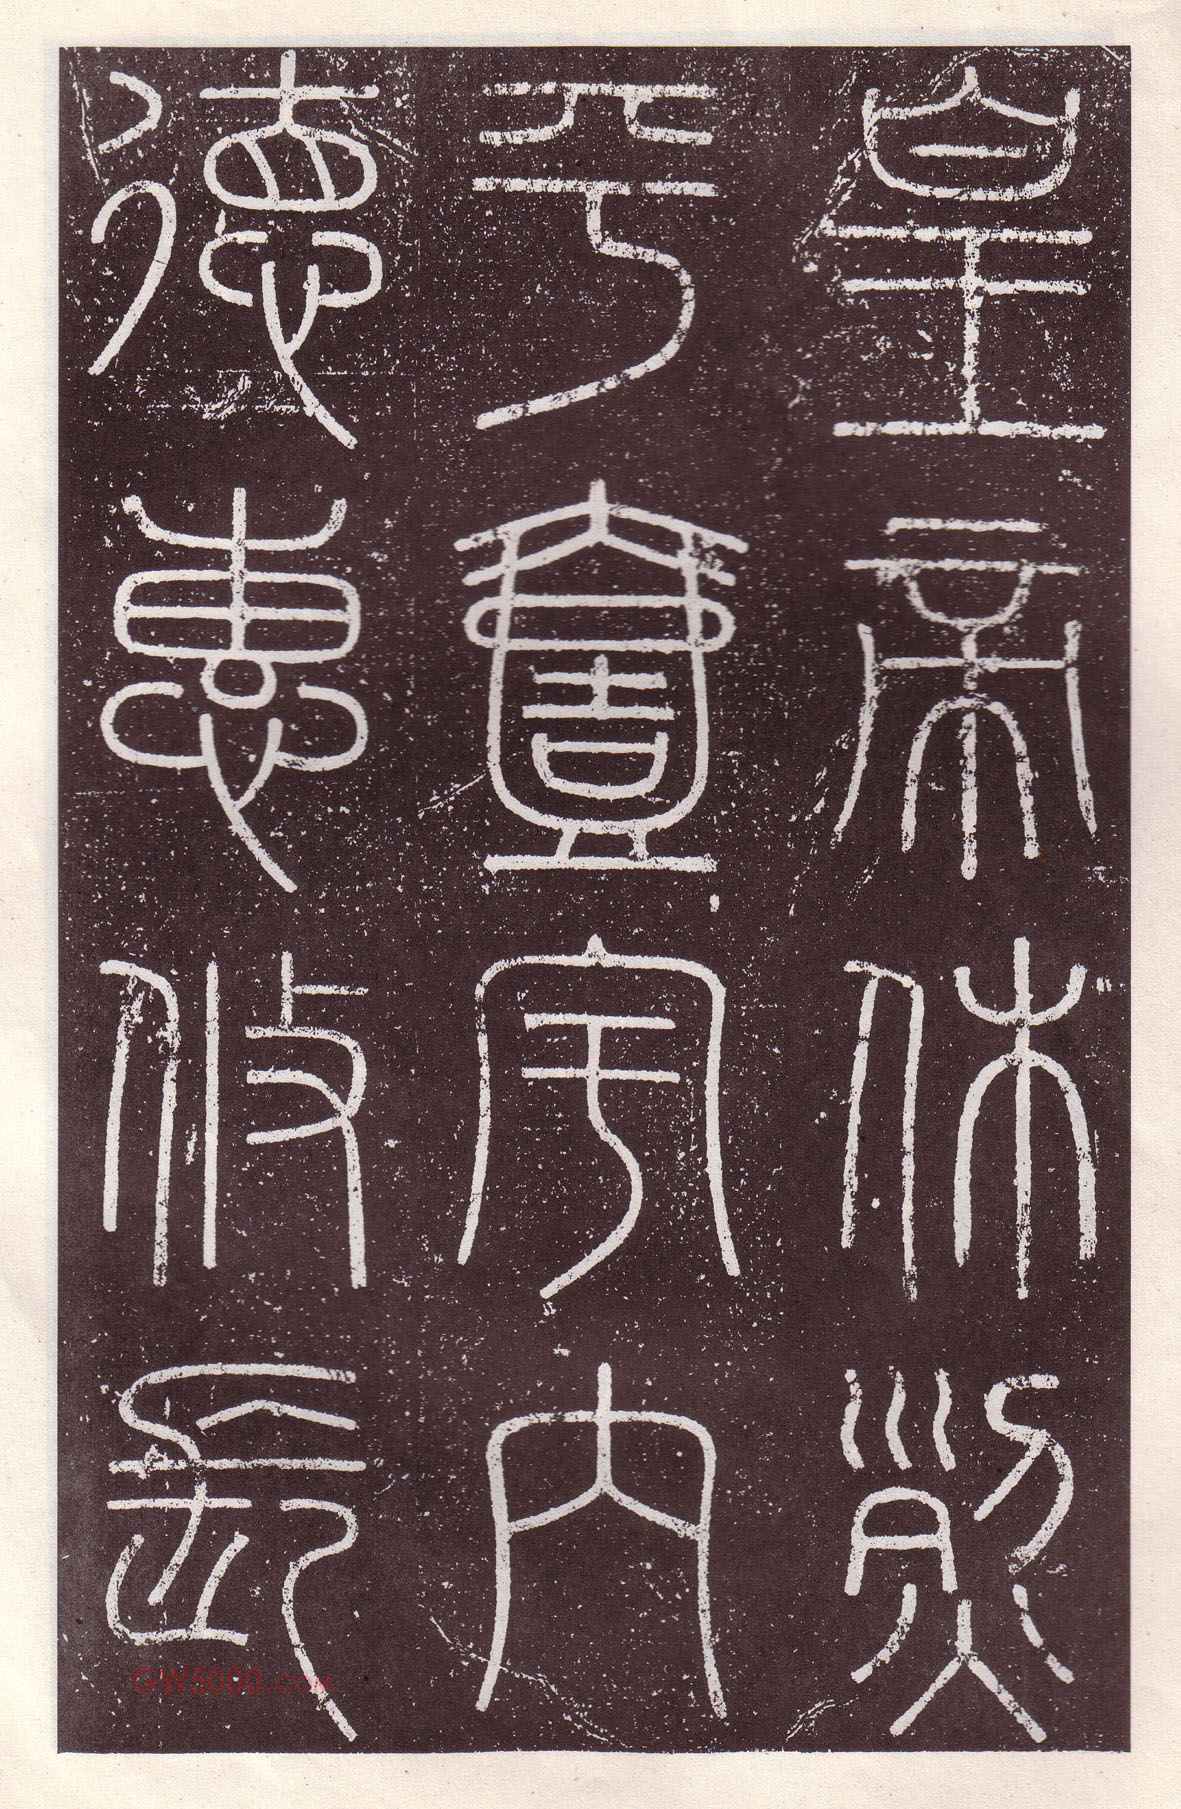 皇帝休烈
平壹宇內
德惠攸長
GW5000.COM